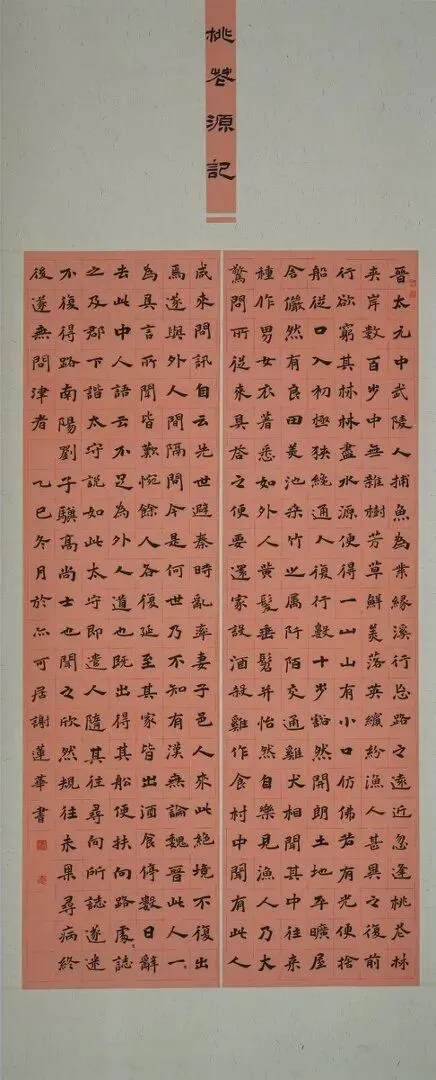 桃花源記
晉太元中武陵人捕魚為業緣溪行忘路之遠近忽逢桃花林
夾岸數百步中無雜樹芳草鮮美落英繽紛漁人甚異之復前
行欲窮其林林盡水源便得一山山有小口仿佛若有光便捨
船從口入初極狹纔通人復行數十步豁然開朗土地平曠屋
舍儼然有良田美池桑竹之属阡陌交通雞犬相聞其中往來
種作男女衣著悉如外人黃髮垂髫并怡然自樂見漁人乃大
驚問所從來具答之便要還家設酒殺雞作食村中聞有此人
咸來問訊自云先世避秦時亂率妻子邑人來此絕境不復出
焉遂與外人間隔問今是何世乃不知有漢無論魏晉此人一〻
為具言所聞皆歎惋餘人各復延至其家皆出酒食停數日辭
去此中人語云不足為外人道也既出得其船便扶向路處〻誌
之及郡下詣太守說如此太守即遣人隨其往尋向所誌遂迷
不復得路南陽劉子驥高尚士也聞之欣然規往未果尋病終
後遂無問津者 乙巳冬月於亦可居謝蓮華書